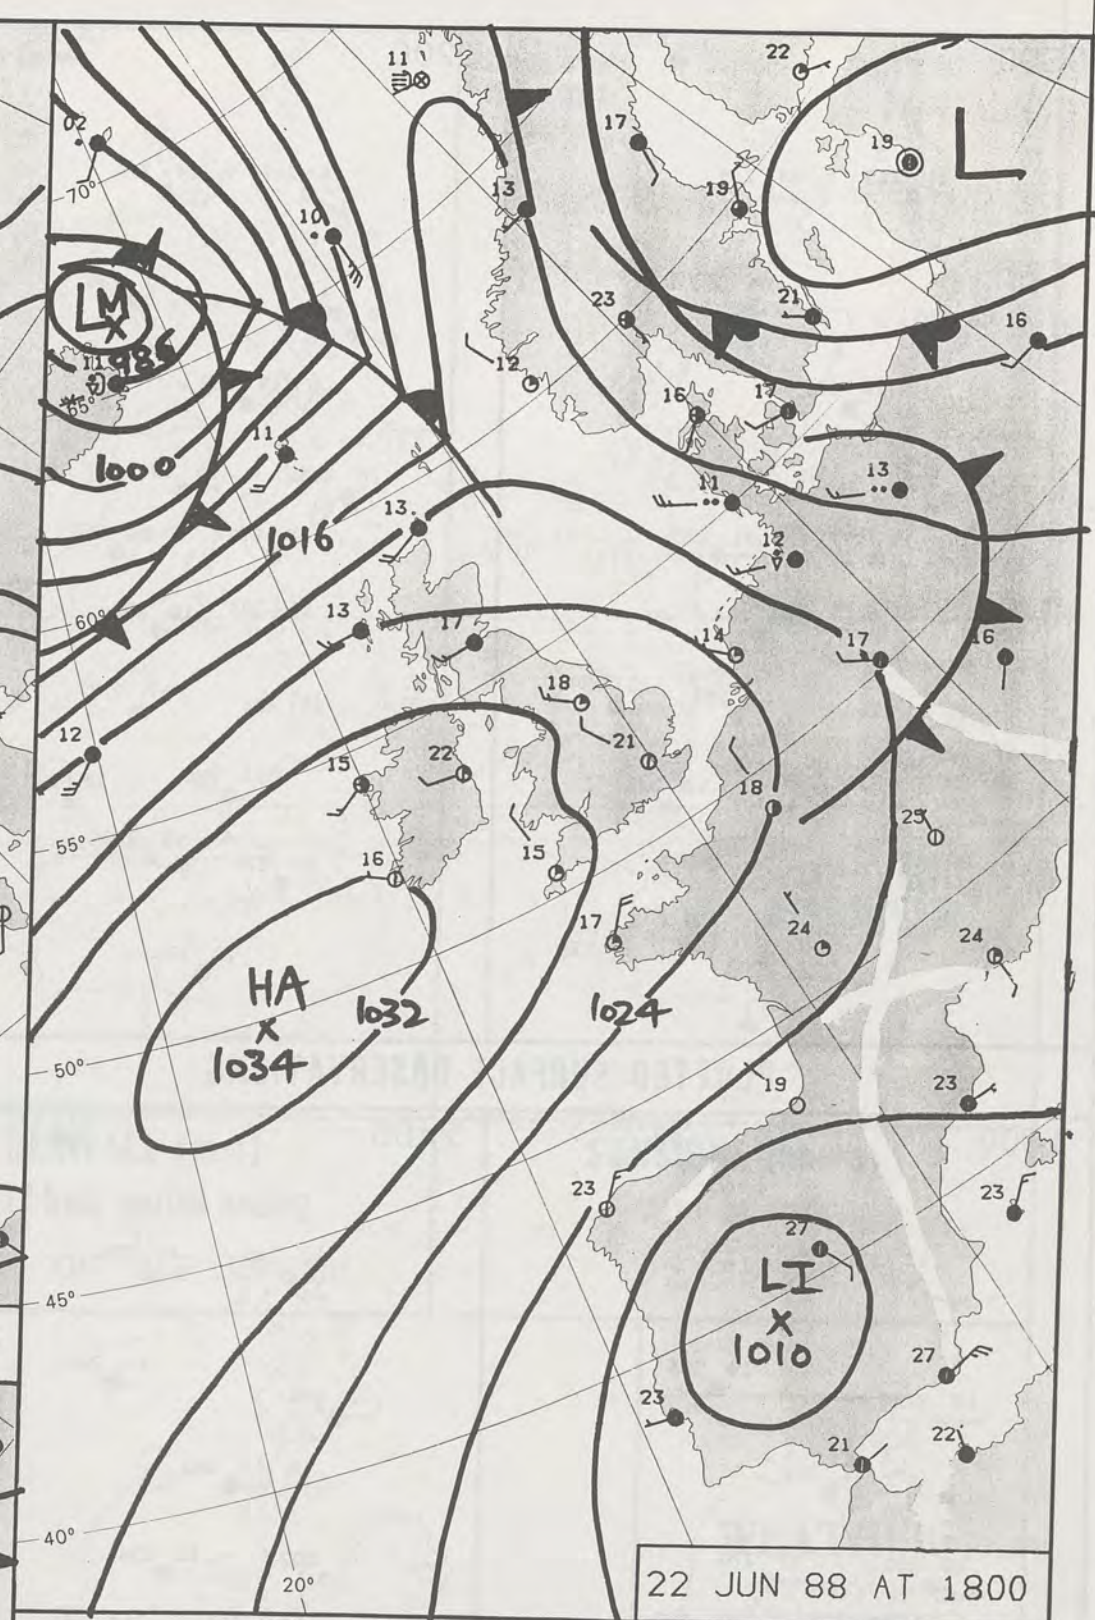 11
22
02
17
19
L
70°
13
19
10
23
21
16
LM
986
11
65°
12
16
17
11
1000
13
11
1016
13
12
60°
13
17
14
17
16
18
12
21
15
22
18
25
55°
16
15
17
24
24
HA
1032
1024
1034
50°
19
23
23
23
27
LI
45°
1010
27
23
21
22
40°
20°
22 JUN 88 AT 1800